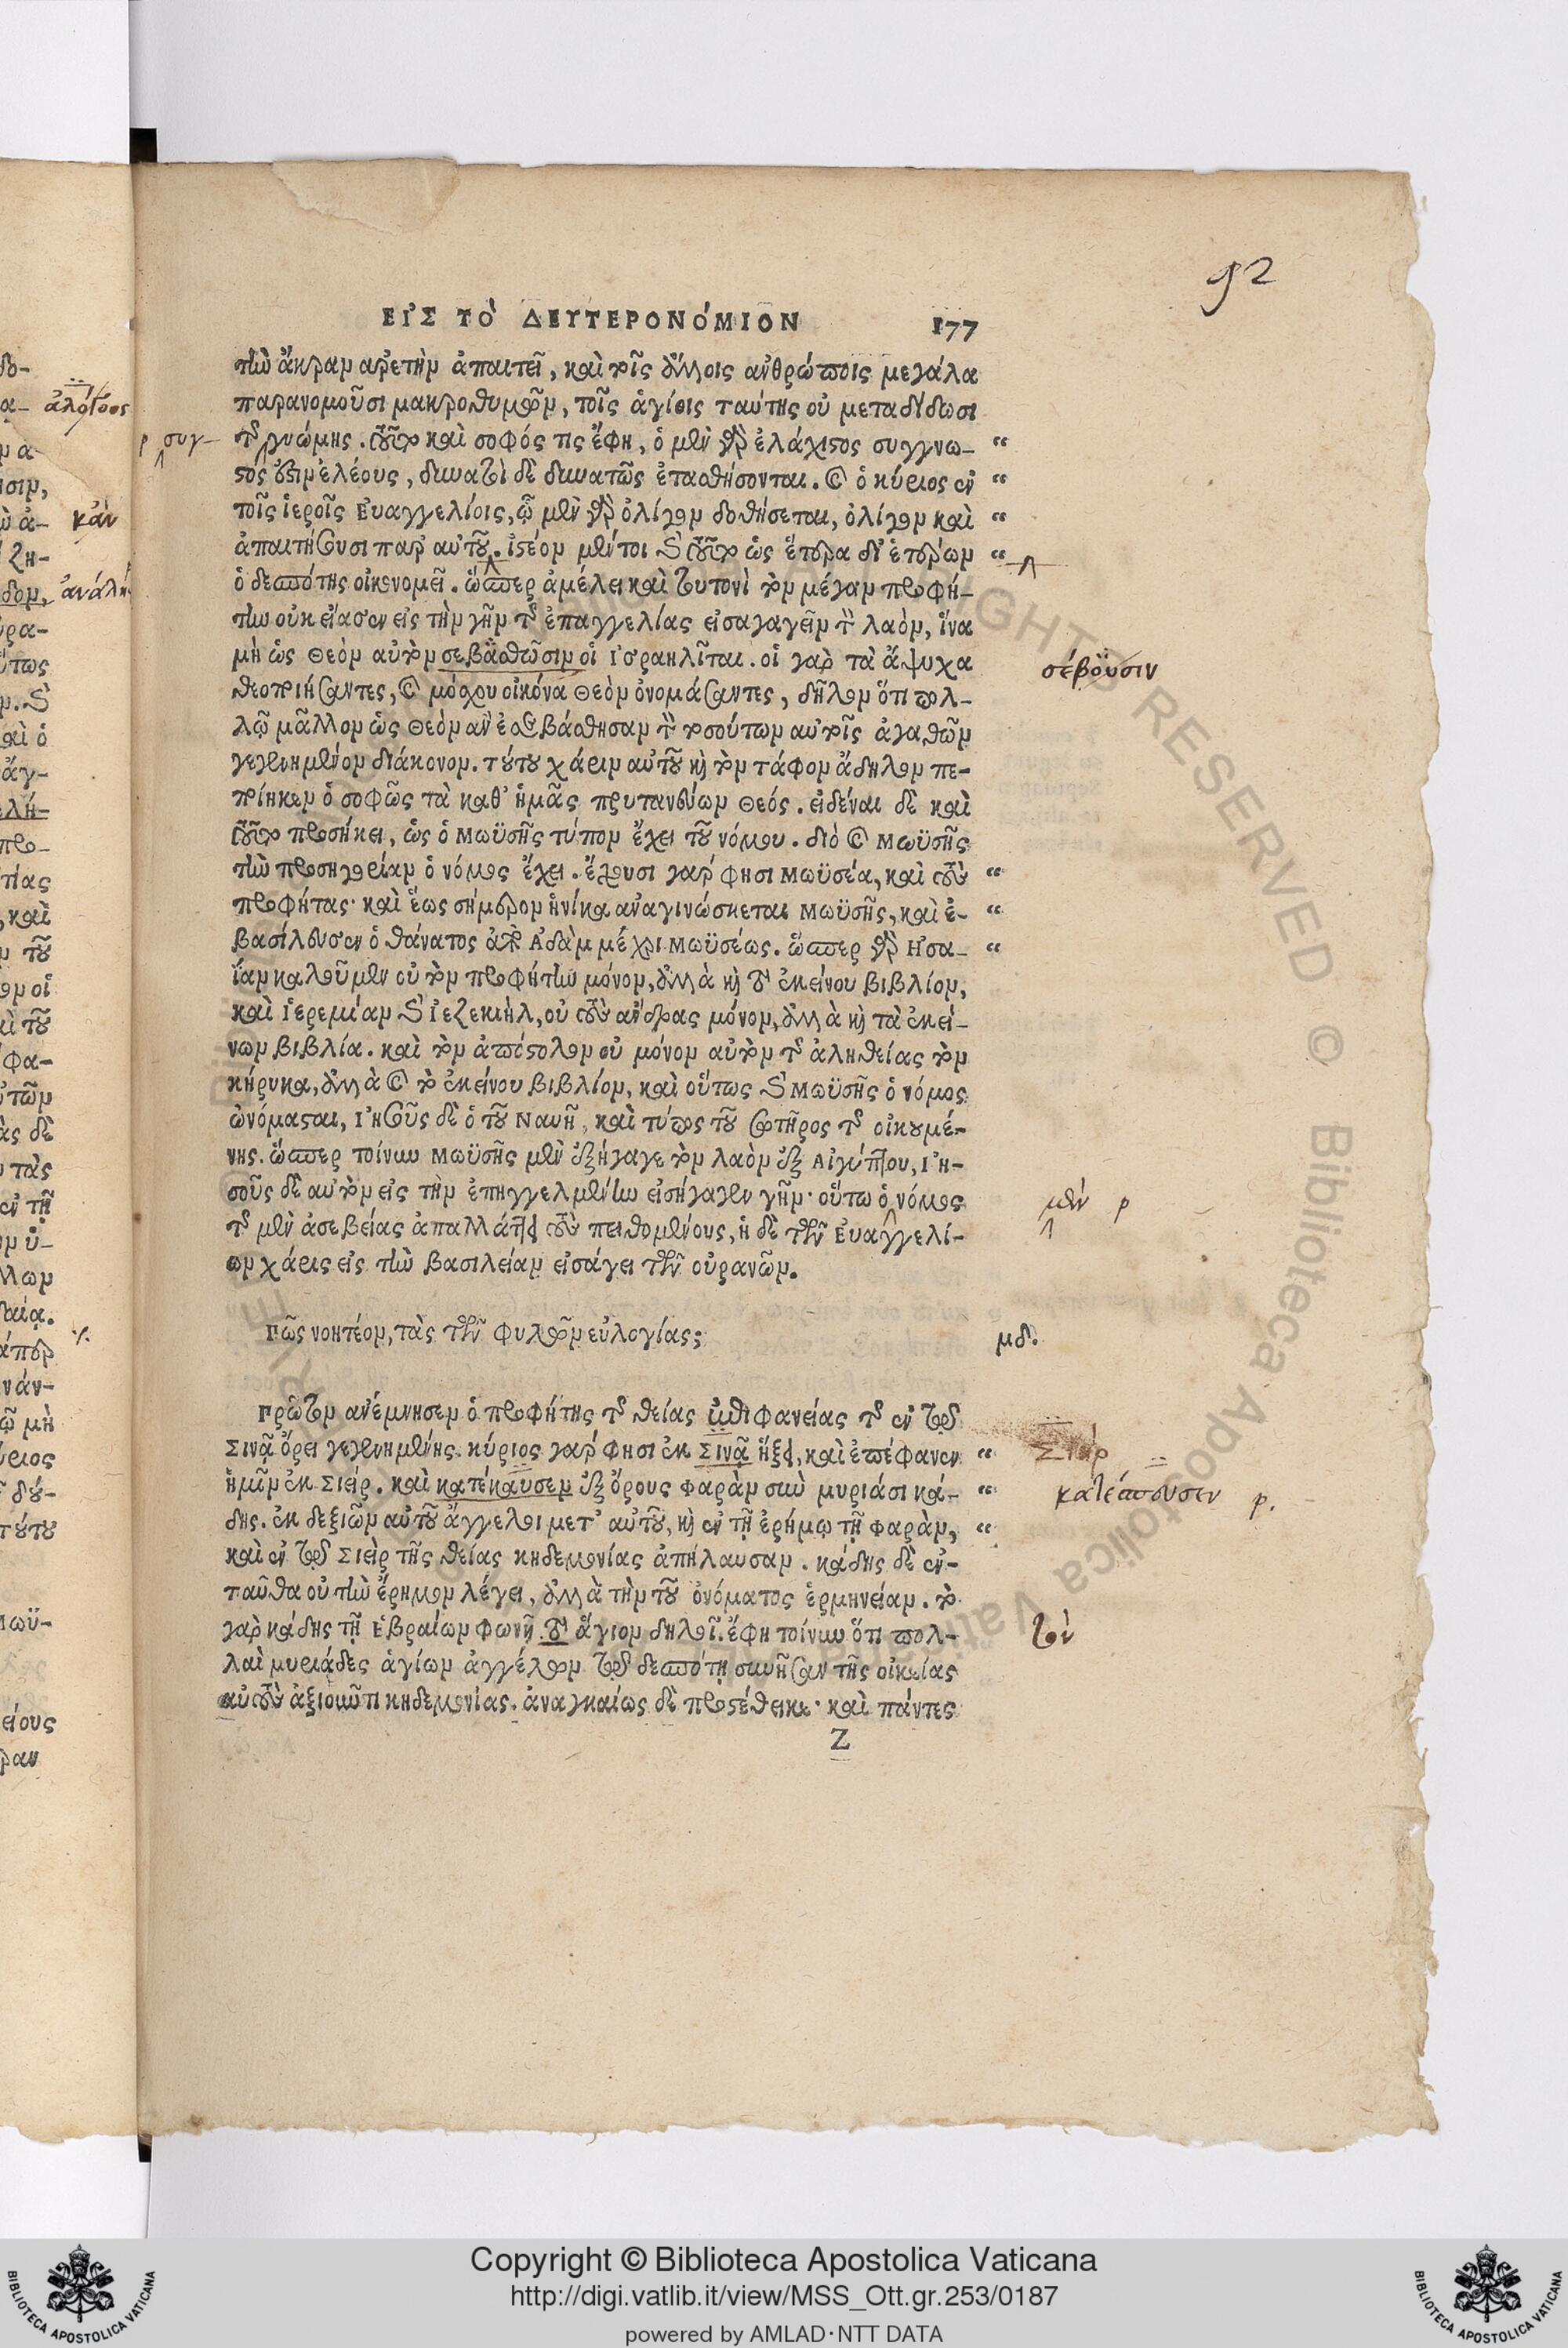 92
ΕΙ᾿Σ ΤΟ` ΔΕΥΤΕΡΟΝΟ΄ΜΙΟΝ 177
τὴν ἄκραν ἀρετὴν ἀπαιτεῖ, καὶ τοῖς ἄλλοις ἀνθρώποις μεγάλα
παρανομοῦσι μακροθυμῶν, τοῖς ἁγίοις ταύτης οὐ μεταδίδωσι
τῆς γνώμης. τοῦτο καὶ σοφός τις ἔφη, ὁ μὲν γὰρ ἐλάχιστος συγγνω- “
ρ συγ-
στός ἐστιν ἐλέους, δυνατοὶ δὲ δυνατῶς ἐτασθήσονται. καὶ ὁ κύριος ἐν “
τοῖς ἱεροῖς Εὐαγγελίοις, ᾧ μὲν γὰρ ὀλίγον δοθήσεται, ὀλίγον καὶ “
ἀπαιτήσουσι παρ᾽ αὐτοῦ. ἰστέον μέντοι καὶ τοῦτο ὡς ἕτερα δι᾽ ἑτέρων “
ὁ δεσπότης οἰκονομεῖ. ὥσπερ ἀμέλει καὶ τουτονὶ τὸν μέγαν προφή-
την οὐκ εἴασεν εἰς τὴν γῆν τῆς ἐπαγγελίας εἰσαγαγεῖν τὸν λαὸν, ἵνα
μὴ ὡς Θεὸν αὐτὸν σεβασθῶσιν οἱ Ἰσραηλῖται. οἱ γαρ τὰ ἄψυχα
σέβουσιν
θεοποιήσαντες, καὶ μόσχου εἰκόνα Θεὸν ὀνομάσαντες, δῆλον ὅτι πολ-
λῷ μᾶλλον ὡς Θεὸν ἂν ἐσεβάσθησαν τὸν τοσούτων αὐτοῖς ἀγαθῶν
γεγενημένον διάκονον. τούτου χάριν αὐτοῦ καὶ τὸν τάφον ἄδηλον πε-
ποίηκεν ὁ σοφῶς τὰ καθ᾽ ἡμᾶς πρυτανεύων Θεός. εἰδέναι δὲ καὶ
τοῦτο προσήκει, ὡς ὁ Μωϋσῆς τύπον ἔχει τοῦ νόμου. διὸ καὶ Μωϋσῆς
τὴν προσηγορίαν ὁ νόμος ἔχει. ἔχουσι γάρ φησι Μωϋσέα, καὶ τοὺς “
προφήτας· καὶ ἕως σήμερον ἡνίκα ἀναγινώσκεται Μωϋσῆς, καὶ ἐ- “
βασίλευσεν ὁ θάνατος ἀπὸ Ἀδὰμ μέχρι Μωϋσέως. ὥσπερ γὰρ Ἡσα- “
ΐαν καλοῦμεν οὐ τὸν προφήτην μόνον, ἀλλὰ καὶ τὸ ἐκείνου βιβλίον,
καὶ Ἱερεμίαν καὶ Ἰεζεκιὴλ, οὐ τοὺς ἄνδρας μόνον, ἀλλὰ καὶ τὰ ἐκεί-
νων βιβλία. καὶ τὸν ἀπόστολον οὐ μόνον αὐτὸν τῆς ἀληθείας τὸν
κήρυκα, ἀλλὰ καὶ τὸ ἐκείνου βιβλίον, καὶ οὕτως καὶ Μωϋσῆς ὁ νόμος
ὠνόμασται, Ἰησοῦς δὲ ὁ τοῦ Ναυῆ, καὶ τύπος τοῦ σωτῆρος τῆς οἰκουμέ-
νης. ὥσπερ τοίνυν Μωϋσῆς μὲν ἐξήγαγε τὸν λαὸν ἐξ Αἰγύπτου, Ἰη-
σοῦς δὲ αὐτὸν εἰς τὴν ἐπηγγελμένην εἰσήγαγεν γῆν· οὕτω ὁ νόμος
μὲν ρ
τῆς μὲν ἀσεβείας ἀπαλλάττει τοὺς πειθομένους, ἡ δὲ τῶν Εὐαγγελί-
ων χάρις εἰς τὴν βασιλείαν εἰσάγει τῶν οὐρανῶν.
Πῶς νοητέον, τὰς τῶν φυλῶν εὐλογίας; μδ.
Πρῶτον ἀνέμνησεν ὁ προφήτης τῆς θείας ἐπιφανείας τῆς ἐν τῷ
Σινᾷ ὄρει γεγενημένης. κύριος γάρ φησι ἐκ Σινᾷ ἥξει, καὶ ἐπέφανεν “
Σιὴρ
ἡμῖν ἐκ Σιείρ. καὶ κατέκαυσεν ἐξ ὄρους Φαρὰν σὺν μυριάσι κά- “
κατέσπουσεν ρ.
δης. ἐκ δεξιῶν αὐτοῦ ἄγγελοι μετ᾽ αὐτοῦ, καὶ ἐν τῇ ἐρήμῳ τῇ Φαρὰν, “
καὶ ἐν τῷ Σιεὶρ τῆς θείας κηδεμονίας ἀπήλαυσαν. κάδης δὲ ἐν-
ταῦθα οὐ τὴν ἔρημον λέγει, ἀλλὰ τὴν τοῦ ὀνόματος ἑρμηνείαν. τὸ
γαρ κάδης τῇ Ἑβραίων φωνῇ τὸ ἅγιον δηλοῖ. ἔφη τοίνυν ὅτι πολ-
λαὶ μυριάδες ἁγίων ἀγγέλων τῷ δεσπότῃ συνῆσαν τῆς οἰκείας
αὐτοὺς ἀξιοῦντι κηδεμονίας. ἀναγκαίως δὲ προστέθεικε· καὶ πάντες
Z
Copyright © Biblioteca Apostolica Vaticana
http://digi.vatlib.it/view/MSS_Ott.gr.253/0187
powered by AMLAD·NTT DATA